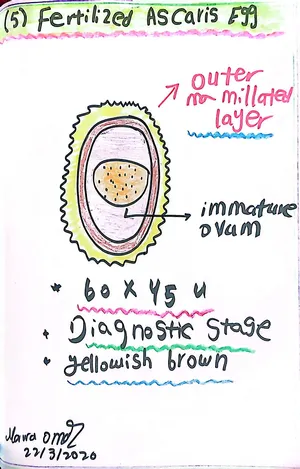 (5) Fertilized Ascaris Egg
outer
ma millated
layer
immature
ovum
* 60 X 45 u
• Diagnostic stage
• yellowish brown
22/3/2020